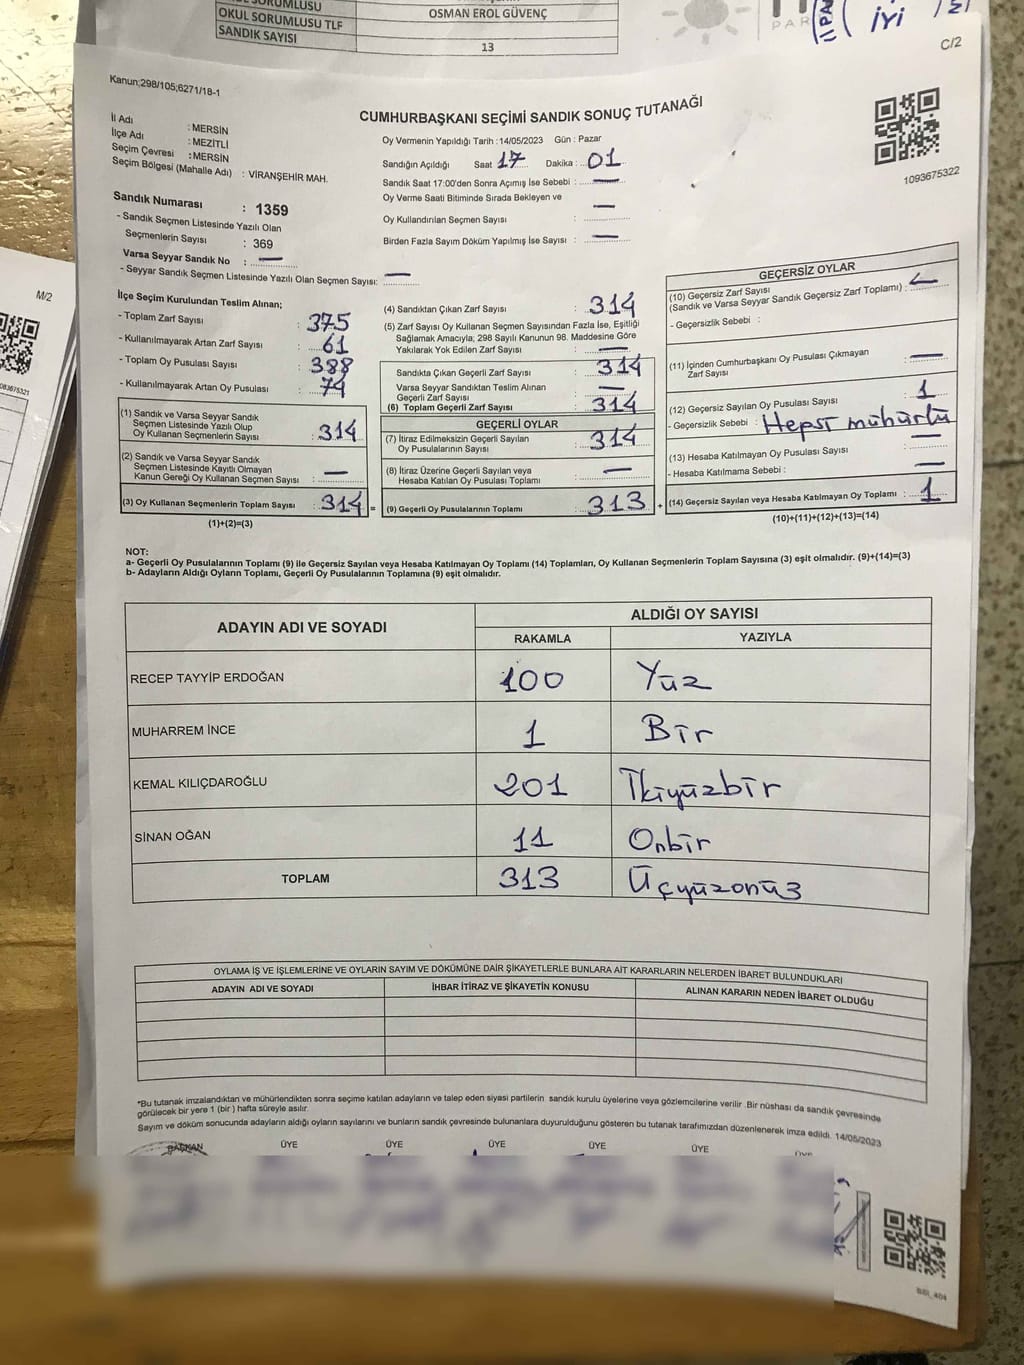 OSMAN EROL GÜVENÇ
OKUL SORUMLUSU TLF
SANDIK SAYISI
13
PAR
İYİ
C/2
Kanun;298/105;6271/18-1
CUMHURBAŞKANI SEÇİMİ SANDIK SONUÇ TUTANAĞI
1093675322
İl Adı : MERSİN
İlçe Adı : MEZİTLİ
Seçim Çevresi : MERSİN
Seçim Bölgesi (Mahalle Adı) : VİRANŞEHİR MAH.
Oy Vermenin Yapıldığı Tarih :14/05/2023 Gün : Pazar
Sandığın Açıldığı Saat 17 Dakika : 01
Sandık Saat 17:00'den Sonra Açımış İse Sebebi : —
Oy Verme Saati Bitiminde Sırada Bekleyen ve —
Oy Kullandırılan Seçmen Sayısı :
Birden Fazla Sayım Döküm Yapılmış İse Sayısı : —
Sandık Numarası : 1359
- Sandık Seçmen Listesinde Yazılı Olan
Seçmenlerin Sayısı : 369
Varsa Seyyar Sandık No : —
- Seyyar Sandık Seçmen Listesinde Yazılı Olan Seçmen Sayısı: —
M/2
İlçe Seçim Kurulundan Teslim Alınan;
- Toplam Zarf Sayısı : 375
- Kullanılmayarak Artan Zarf Sayısı : 61
- Toplam Oy Pusulası Sayısı : 388
- Kullanılmayarak Artan Oy Pusulası : 74
(1) Sandık ve Varsa Seyyar Sandık
Seçmen Listesinde Yazılı Olup
Oy Kullanan Seçmenlerin Sayısı : 314
(2) Sandık ve Varsa Seyyar Sandık
Seçmen Listesinde Kayıtlı Olmayan
Kanun Gereği Oy Kullanan Seçmen Sayısı : —
(3) Oy Kullanan Seçmenlerin Toplam Sayısı : 314 =
(1)+(2)=(3)
(4) Sandıktan Çıkan Zarf Sayısı : 314
(5) Zarf Sayısı Oy Kullanan Seçmen Sayısından Fazla İse, Eşitliği
Sağlamak Amacıyla; 298 Sayılı Kanunun 98. Maddesine Göre
Yakılarak Yok Edilen Zarf Sayısı : —
Sandıkta Çıkan Geçerli Zarf Sayısı : 314
Varsa Seyyar Sandıktan Teslim Alınan
Geçerli Zarf Sayısı : —
(6) Toplam Geçerli Zarf Sayısı : 314
GEÇERLİ OYLAR
(7) İtiraz Edilmeksizin Geçerli Sayılan
Oy Pusulalarının Sayısı : 314
(8) İtiraz Üzerine Geçerli Sayılan veya
Hesaba Katılan Oy Pusulası Toplamı : —
(9) Geçerli Oy Pusulalarının Toplamı : 313 +
GEÇERSİZ OYLAR
(10) Geçersiz Zarf Sayısı
(Sandık ve Varsa Seyyar Sandık Geçersiz Zarf Toplamı) : —
- Geçersizlik Sebebi :
(11) İçinden Cumhurbaşkanı Oy Pusulası Çıkmayan
Zarf Sayısı : —
(12) Geçersiz Sayılan Oy Pusulası Sayısı : 1
- Geçersizlik Sebebi : Hepsi mühürlü
(13) Hesaba Katılmayan Oy Pusulası Sayısı : —
- Hesaba Katılmama Sebebi : —
(14) Geçersiz Sayılan veya Hesaba Katılmayan Oy Toplamı : 1
(10)+(11)+(12)+(13)=(14)
NOT:
a- Geçerli Oy Pusulalarının Toplamı (9) ile Geçersiz Sayılan veya Hesaba Katılmayan Oy Toplamı (14) Toplamları, Oy Kullanan Seçmenlerin Toplam Sayısına (3) eşit olmalıdır. (9)+(14)=(3)
b- Adayların Aldığı Oyların Toplamı, Geçerli Oy Pusulalarının Toplamına (9) eşit olmalıdır.
ADAYIN ADI VE SOYADI ALDIĞI OY SAYISI
RAKAMLA YAZIYLA
RECEP TAYYİP ERDOĞAN 100 Yüz
MUHARREM İNCE 1 Bir
KEMAL KILIÇDAROĞLU 201 İkiyüzbir
SİNAN OĞAN 11 Onbir
TOPLAM 313 Üçyüzonüç
OYLAMA İŞ VE İŞLEMLERİNE VE OYLARIN SAYIM VE DÖKÜMÜNE DAİR ŞİKAYETLERLE BUNLARA AİT KARARLARIN NELERDEN İBARET BULUNDUKLARI
ADAYIN ADI VE SOYADI İHBAR İTİRAZ VE ŞİKAYETİN KONUSU ALINAN KARARIN NEDEN İBARET OLDUĞU
*Bu tutanak imzalandıktan ve mühürlendikten sonra seçime katılan adayların ve talep eden siyasi partilerin sandık kurulu üyelerine veya gözlemcilerine verilir .Bir nüshası da sandık çevresinde
görülecek bir yere 1 (bir ) hafta süreyle asılır.
Sayım ve döküm sonucunda adayların aldığı oyların sayılarını ve bunların sandık çevresinde bulunanlara duyurulduğunu gösteren bu tutanak tarafımızdan düzenlenerek imza edildi. 14/05/2023
BAŞKAN ÜYE ÜYE ÜYE ÜYE ÜYE ÜYE